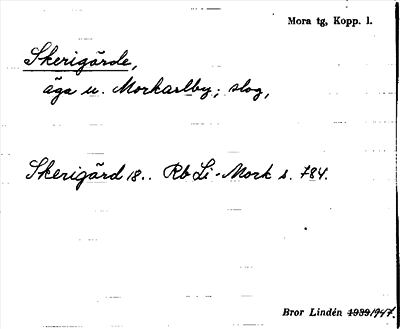 Mora tg, Kopp. l.
Skerigärde,
äga u. Morkarlby; slog,
Skerigärd 18.. Rb Li-Mork s. 784.
Bror Lindén 1939/947.